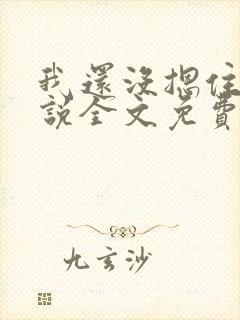 我還沒摁住
說全文免費
九玄沙